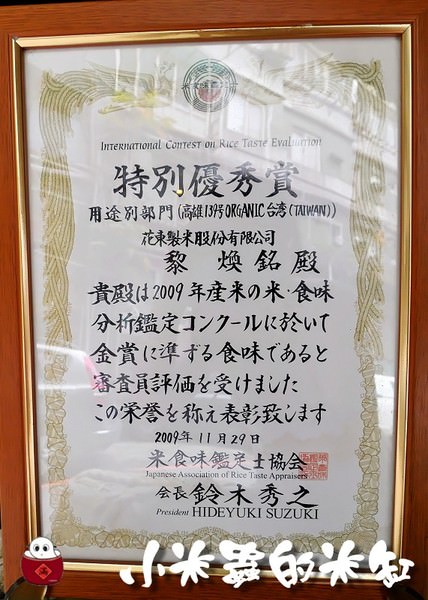 INTERNATIONAL CONTEST ON RICE TASTE EVALUATION
特別優秀賞
用途別部門(高雄139号ORGANIC台湾(TAIWAN))
花東製米股份有限公司
黎 煥銘殿
貴殿は2009年産米の米・食味
分析鑑定コンクールに於いて
金賞に準ずる食味であると
審査員評価を受けました
この栄誉を称え表彰致します
2009年11月29日
米食味鑑定士協会
Japanese Association of Rice Taste Appraisers
会長 鈴木秀之
President HIDEYUKI SUZUKI
小米蟲的米缸